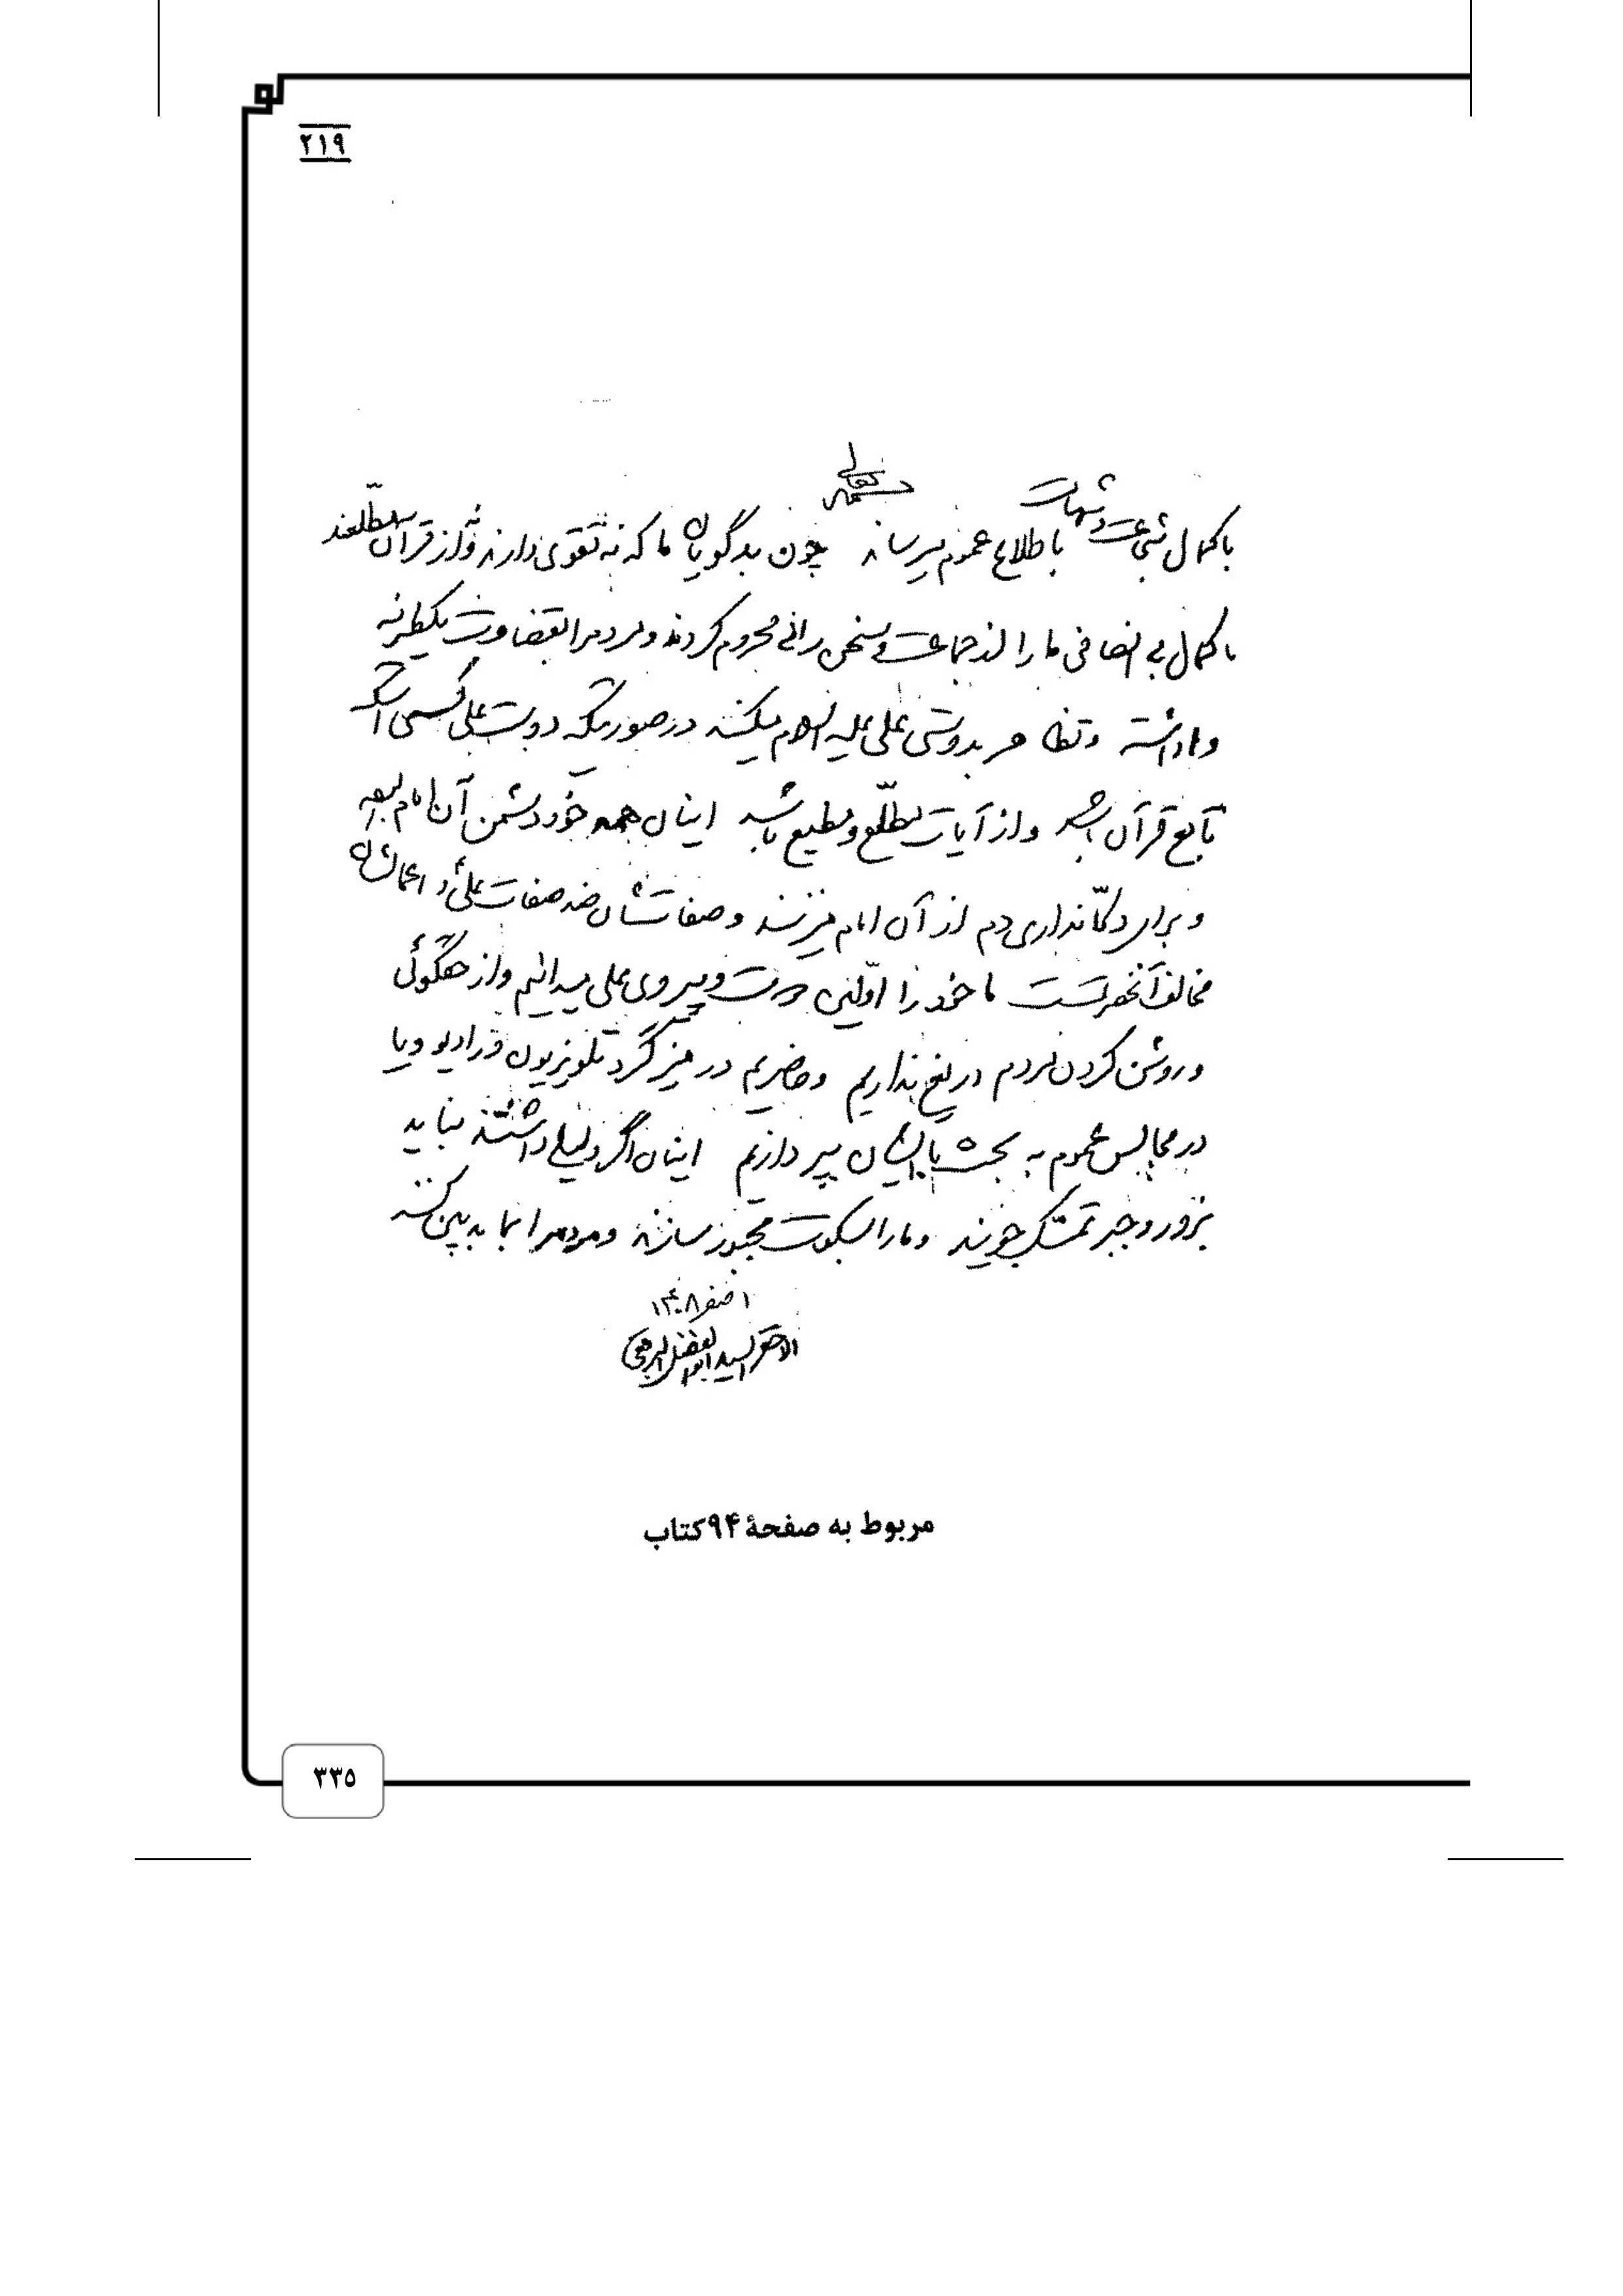 ۲۱۹
بسمه تعالی
با کمال شجاعت و شهامت باطلاع عموم میرساند چون بدگویان ما که نه تقوی دارند و نه از قرآن مطلعند
با کمال بی انصافی ما را از جماعت و سخن رانی محروم کردند و مردم را بقضاوت یکطرفه
واداشته و تظاهر بدوستی علی علیه السلام میکنند در صورتیکه دوست علی کسی است که
تابع قرآن باشد و از آیات مطلع و مطیع باشد اینان همه خود دشمن آن امام
و برای دکانداری دم از آن امام میزنند و صفاتشان ضد صفات علی و اعمالشان
مخالف آنحضرتست ما خود را اولین دوست و پیروی علی میدانیم و از حقگوئی
و روشن کردن مردم دریغ نداریم و حاضریم در میز گرد تلویزیون و رادیو و یا
در مجالس عموم به بحث با ایشان بپردازیم اینان اگر دلیلی داشتند نباید
بزور و جبر تمسک جویند و ما را بسکوت مجبور سازند و مردم را بما بدبین کنند
۱ صفر ۱۴۰۸
الاحقر السید ابوالفضل البرقعی
مربوط به صفحهٔ ۹۴ کتاب
۳۳۵